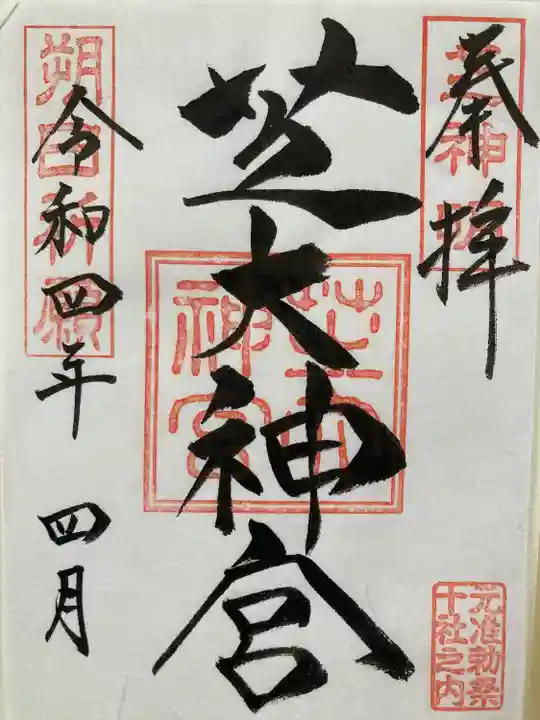 奉拝
芝大神宮
令和四年 四月
朔日祈願
芝大神宮
元准勅祭
十社之内